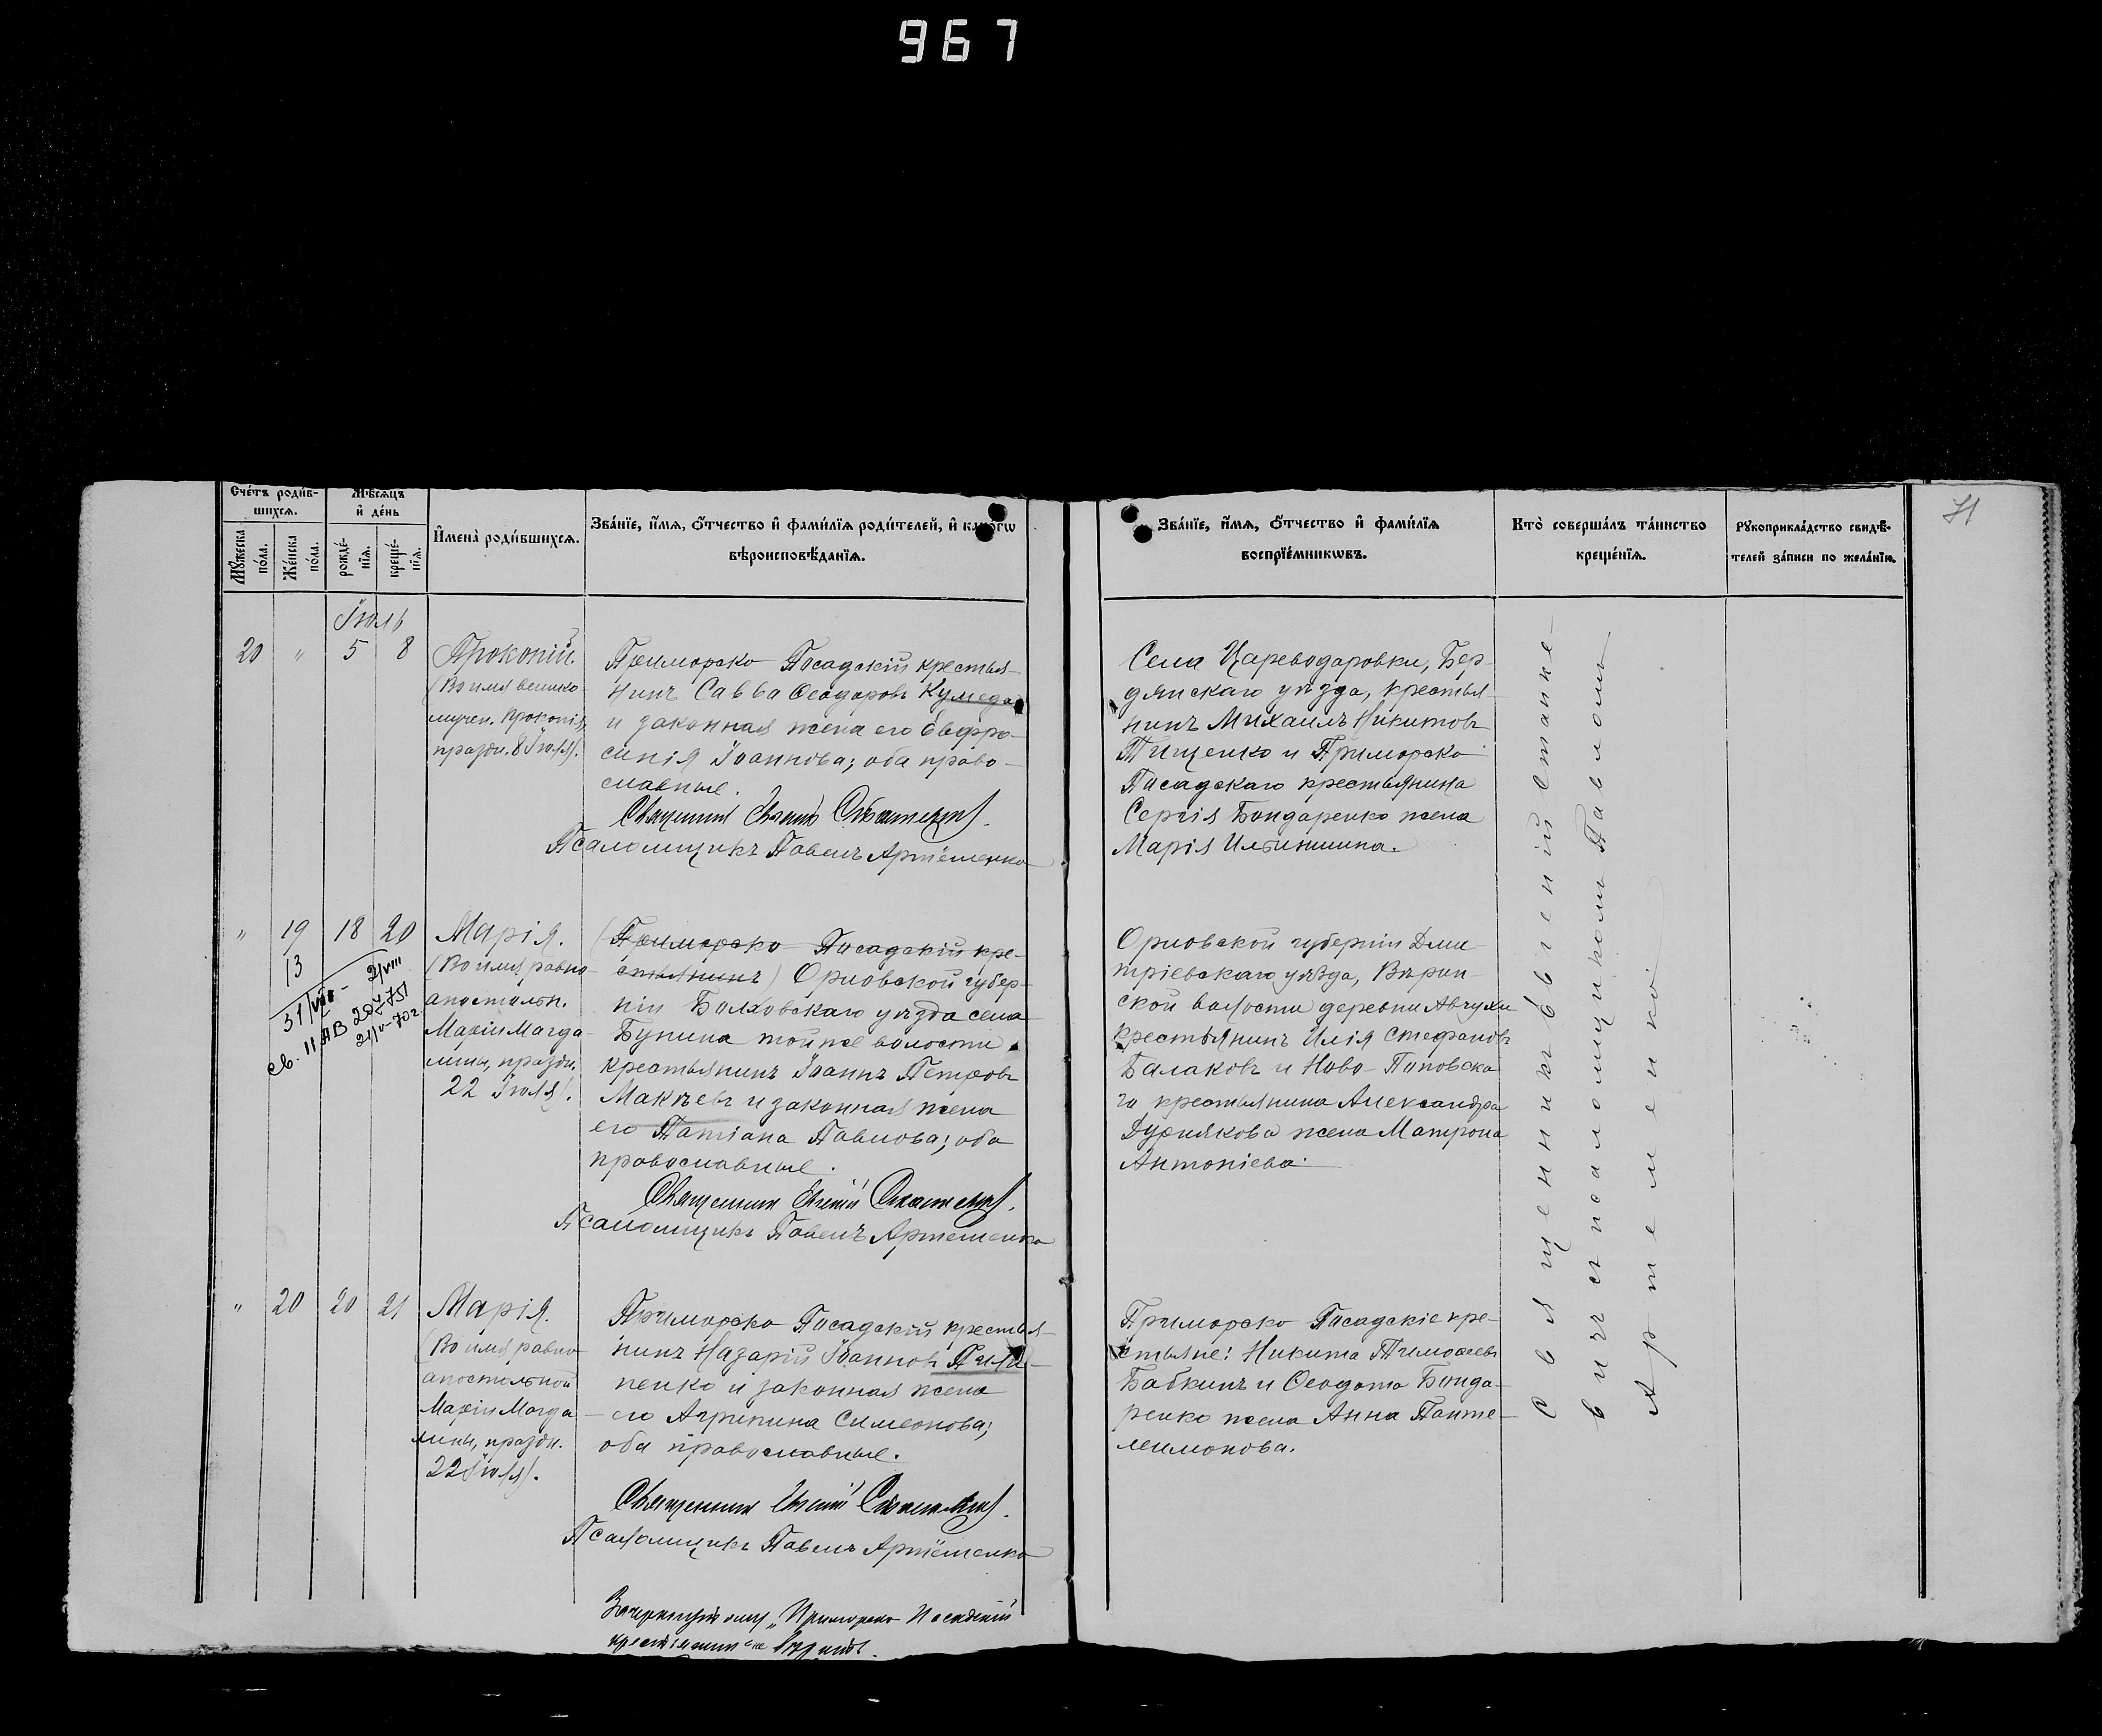 967
71
Счетъ родив-
шихся.
Мѣсяцъ
и день
Мужеска
пола.
Женска
пола.
рожде-
нія.
креще-
нія.
Имена родившихся.
Званіе, имя, отчество и фамилія родителей, и какогѡ
вѣроисповѣданія.
Званіе, имя, отчество и фамилія
воспріемникѡвъ.
Кто совершалъ таинство
крещенія.
Рукоприкладство свидѣ-
телей записи по желанію.
Іюль
20 " 5 8
Прокопій.
(Во имя велико-
мучен. Прокопія,
праздн. 8 Іюля).
Приморско-Посадскій крестья-
нинъ Савва Ѳеодоровъ Кумеда
и законная жена его Евфро-
синія Іоаннова; оба право-
славные.
Священникъ Евгеній
Псаломщикъ Павелъ Артёменко
Села Цареводаровки, Бер-
дянскаго уѣзда, крестья-
нинъ Михаилъ Никитовъ
Тищенко и Приморско-
Посадскаго крестьянина
Сергія Бондаренко жена
Марія Ильинишна.
" 19 18 20
13
31/VIII - 2/VIII
св. II АВ 297751
21/V-70г
Марія.
(Во имя равно-
апостольн.
Маріи Магда-
лины, праздн.
22 Іюля).
(Приморско-Посадскій кре-
стьянинъ) Орловской губер-
ніи Болховскаго уѣзда села
Бунина той же волости
крестьянинъ Іоаннъ Петровъ
Макѣевъ и законная жена
его Татіана Павлова; оба
православные.
Священникъ Евгеній
Псаломщикъ Павелъ Артеменко
Орловской губерніи Дми-
тріевскаго уѣзда,
ской волости деревни
крестьянинъ Илія Стефановъ
Балаковъ и Ново-Поповска-
го крестьянина Александра
Дурнякова жена Матрона
Антоніева.
" 20 20 21
Марія.
(Во имя равно-
апостольной
Маріи Магда-
лины, праздн.
22 Іюля).
Приморско-Посадскій крестья-
нинъ Назарій Іоанновъ Пили-
пенко и законная жена
его Агрипина Симеонова;
оба православные.
Священникъ Евгеній
Псаломщикъ Павелъ Артёменко
Приморско-Посадскіе кре-
стьяне: Никита Тимоѳеевъ
Бабкинъ и Ѳеодота Бонда-
ренко жена Анна Панте-
леимонова.
Священникъ Евгеній Станке-
вичъ съ псаломщикомъ Павломъ
Артеменко.
"Приморско-Посадскій
крестьянинъ" не